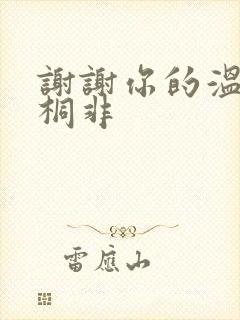 謝謝你的溫
桐非
雷應山